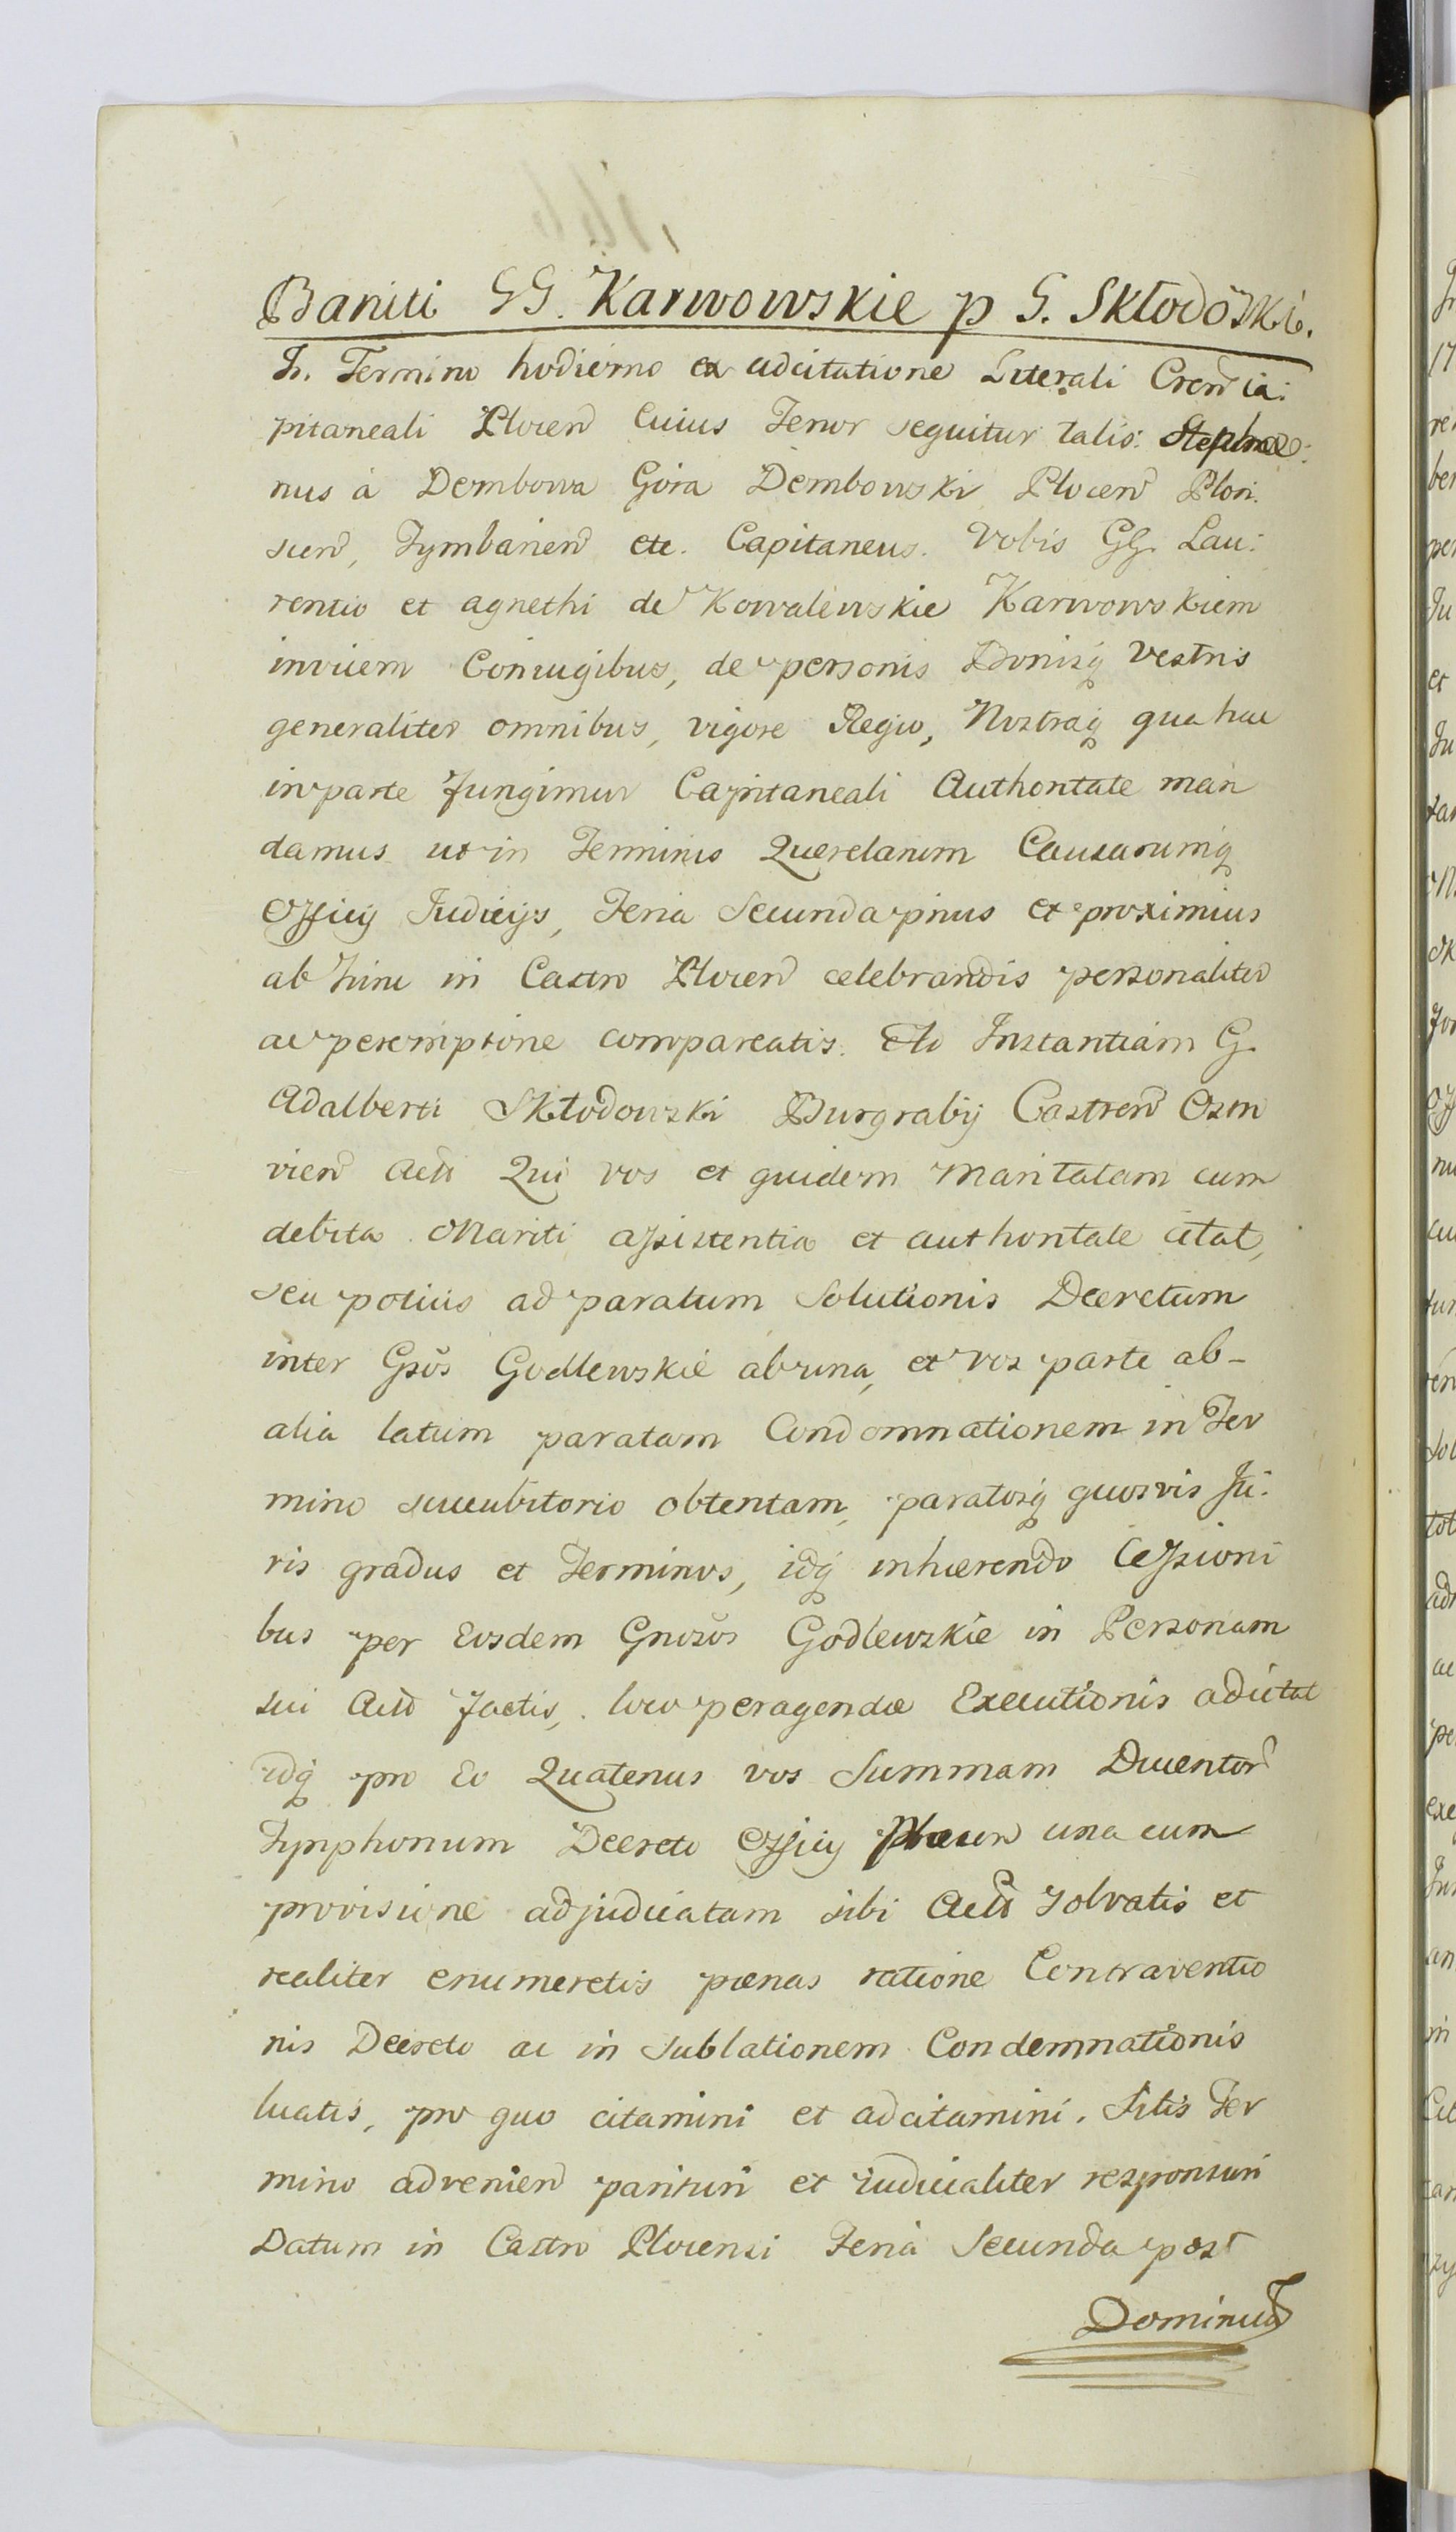 Baniti GG. Karwowskie p G. Skłodowski.
In Termino hodierno ex adcitatione Literali Cren Ca:
pitaneali Plocen Cuius Tenor sequitur talis: Stepha:
nus à Dembowa Góra Dembowski Plocen Plon:
scen, Tymbarien etc. Capitaneus. Vobis GG. Lau:
rentio et agnethi de Kowalewskie Karwowskiem
invicem Coniugibus, de personis Bonisq Vestris
generaliter omnibus, vigore Regio, Nostraq qua hac
in parte fungimur Capitaneali Authoritate man
damus ut in Terminis Querelarum Causarumq
Officij Iudicijs, Feria Secunda prius et proximius
ab hinc in Castro Plocen celebrandis personaliter
ac peremptorie compareatis. Ad Instantiam G.
Adalberti Skłodowski Burgrabij Castren Osm
vien Acti Qui vos et quidem Maritatam cum
debita Mariti assistentia et authoritate citat,
seu potius ad paratum Solutionis Decretum
inter Gsos Godlewskie ab una, et vos parte ab-
alia latum paratam Condomnationem in Ter
mino succubitorio obtentam, paratosq quosvis Ju:
ris gradus et Terminos, idq inhærendo Cessioni
bus per Eosdem Gnosos Godlewskie in Personam
sui Acto factis, loco peragendæ Executionis adcitat
idq pro Eo Quatenus vos Summam Ducentor
Tynphonum Decreto Officij Plocen una cum
provisione adjudicatam sibi Acti solvatis et
realiter enumeretis pœnas ratione Contraventio
nis Decreto ac in sublationem Condemnationis
luatis, pro quo citamini et adcitamini. Sitis Ter
mino advenien parituri et iudicialiter responsuri
Datum in Castro Plocensi Feria Secunda post
Dominica